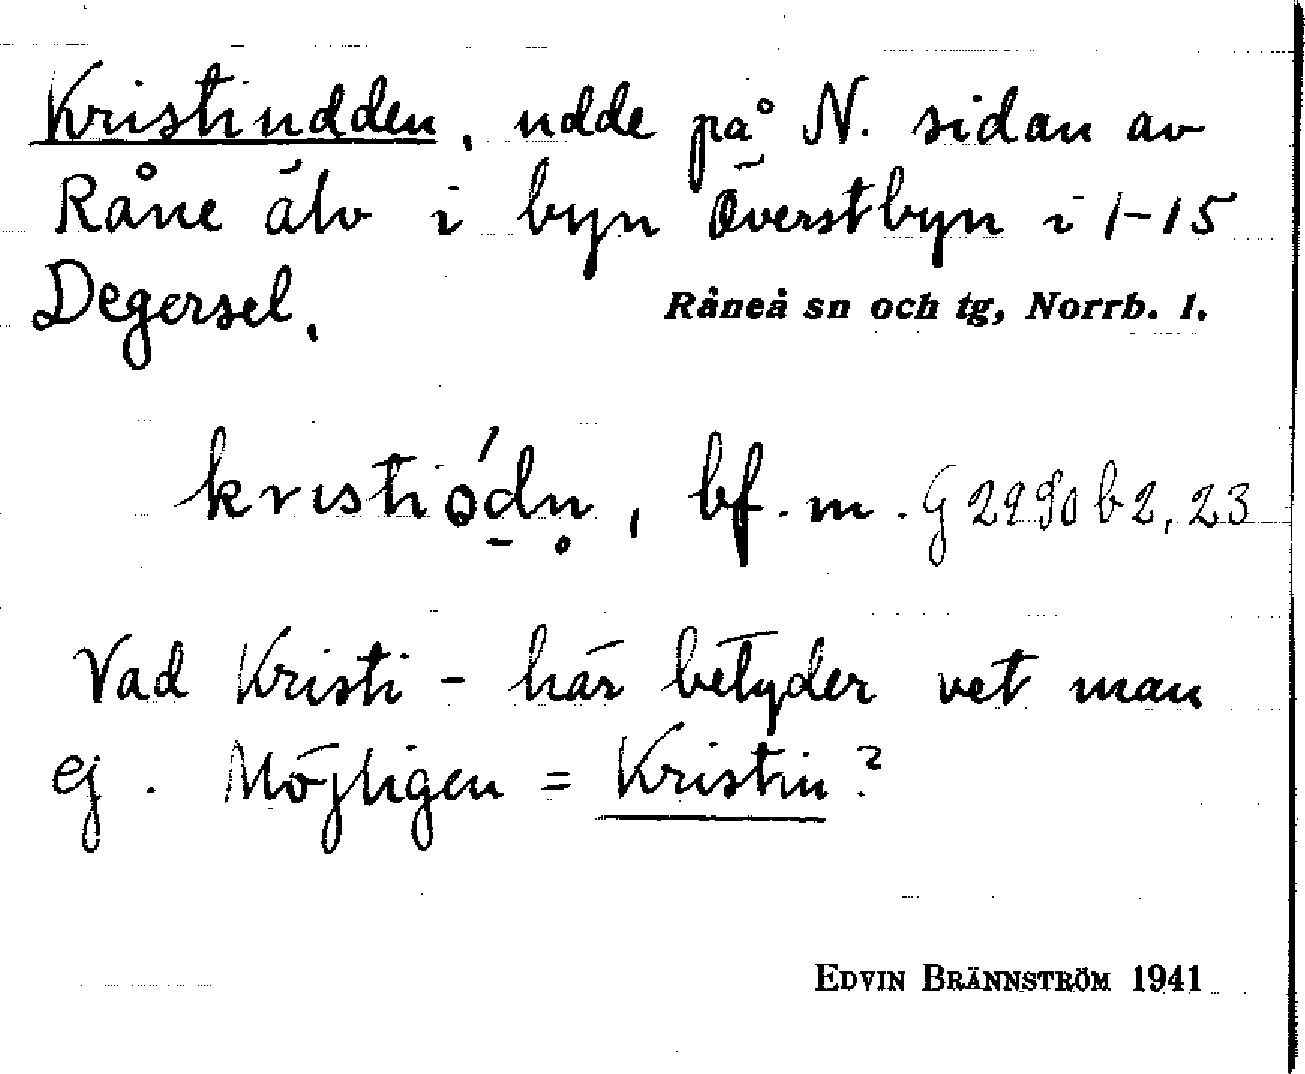 Kristiudden, udde på N. sidan av
Råne älv i byn Överstbyn i 1-15
Degersel.
Råneå sn och tg, Norrb. l.
kristiǫ́d̲n̥, bf. m. G 2290 b 2, 23
Vad Kristi- här betyder vet man
ej. Möjligen = Kristin?
EDVIN BRÄNNSTRÖM 1941